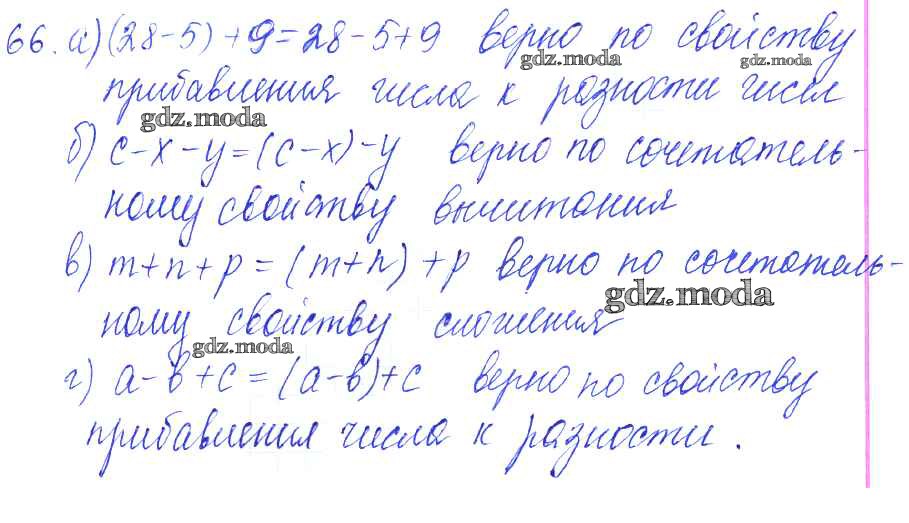 66. а) (28-5)+9=28-5+9 верно по свойству
gdz.moda gdz.moda
прибавления числа к разности чисел
gdz.moda
б) с-х-у=(с-х)-у верно по сочетатель-
ному свойству вычитания
в) m+n+p=(m+n)+p верно по сочетатель-
gdz.moda
ному свойству сложения
gdz.moda
г) a-b+c=(a-b)+c верно по свойству
прибавления числа к разности.